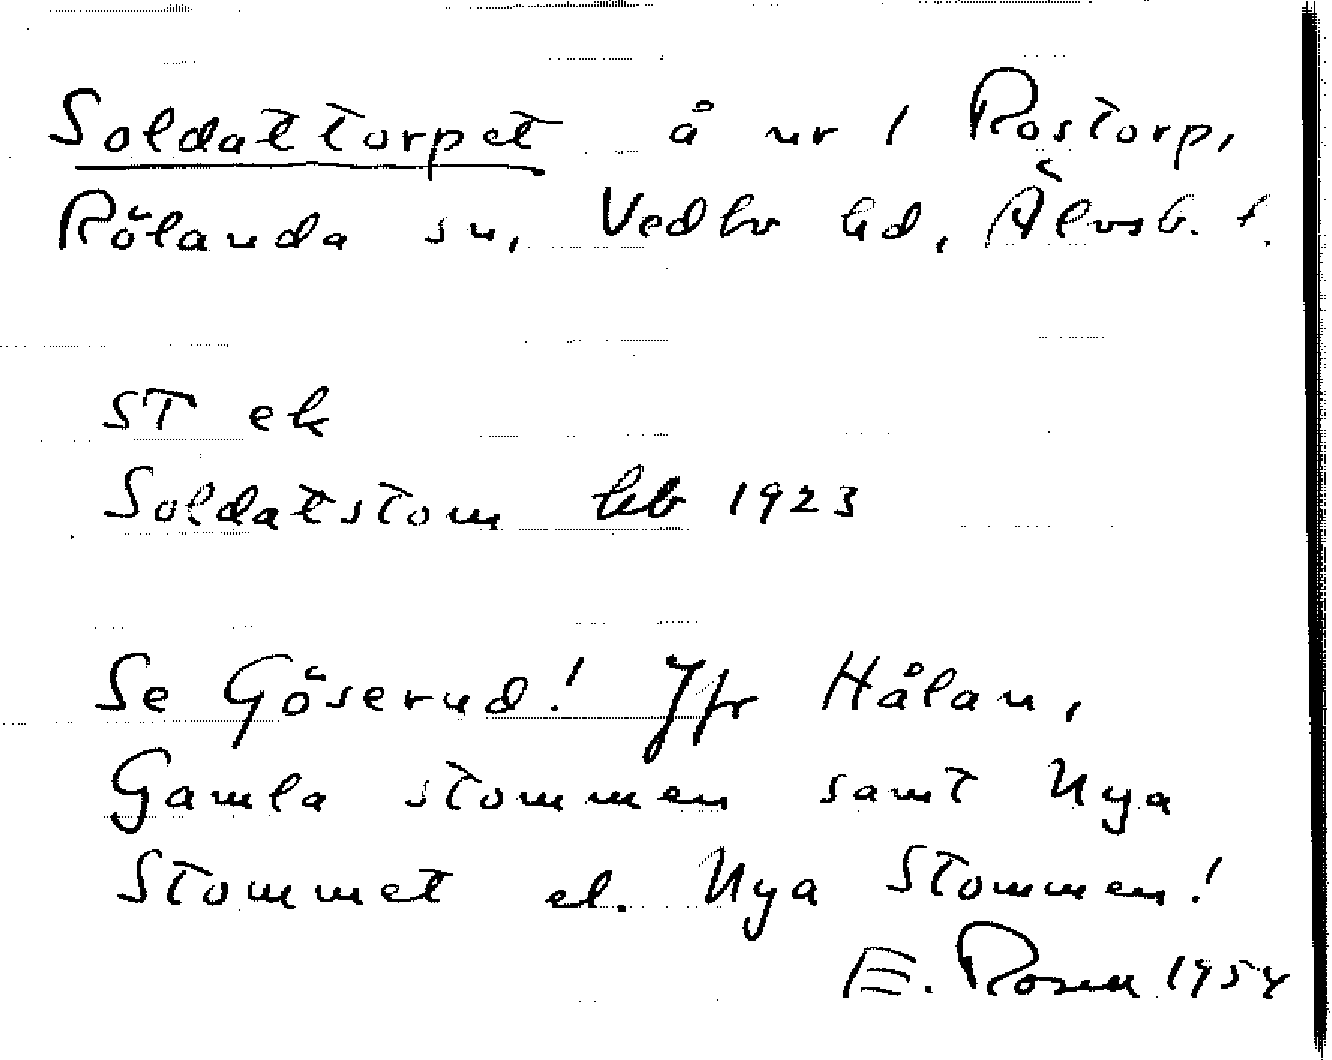 Soldattorpet å nr 1 Rostorp,
Rölanda sn, Vedbo hd, Älvsb. l.
ST ek
Soldatstom hb 1923
Se Göserud! Jfr Hålan,
Gamla stommen samt Nya
Stommet el. Nya Stommen!
E. Rosell 1954